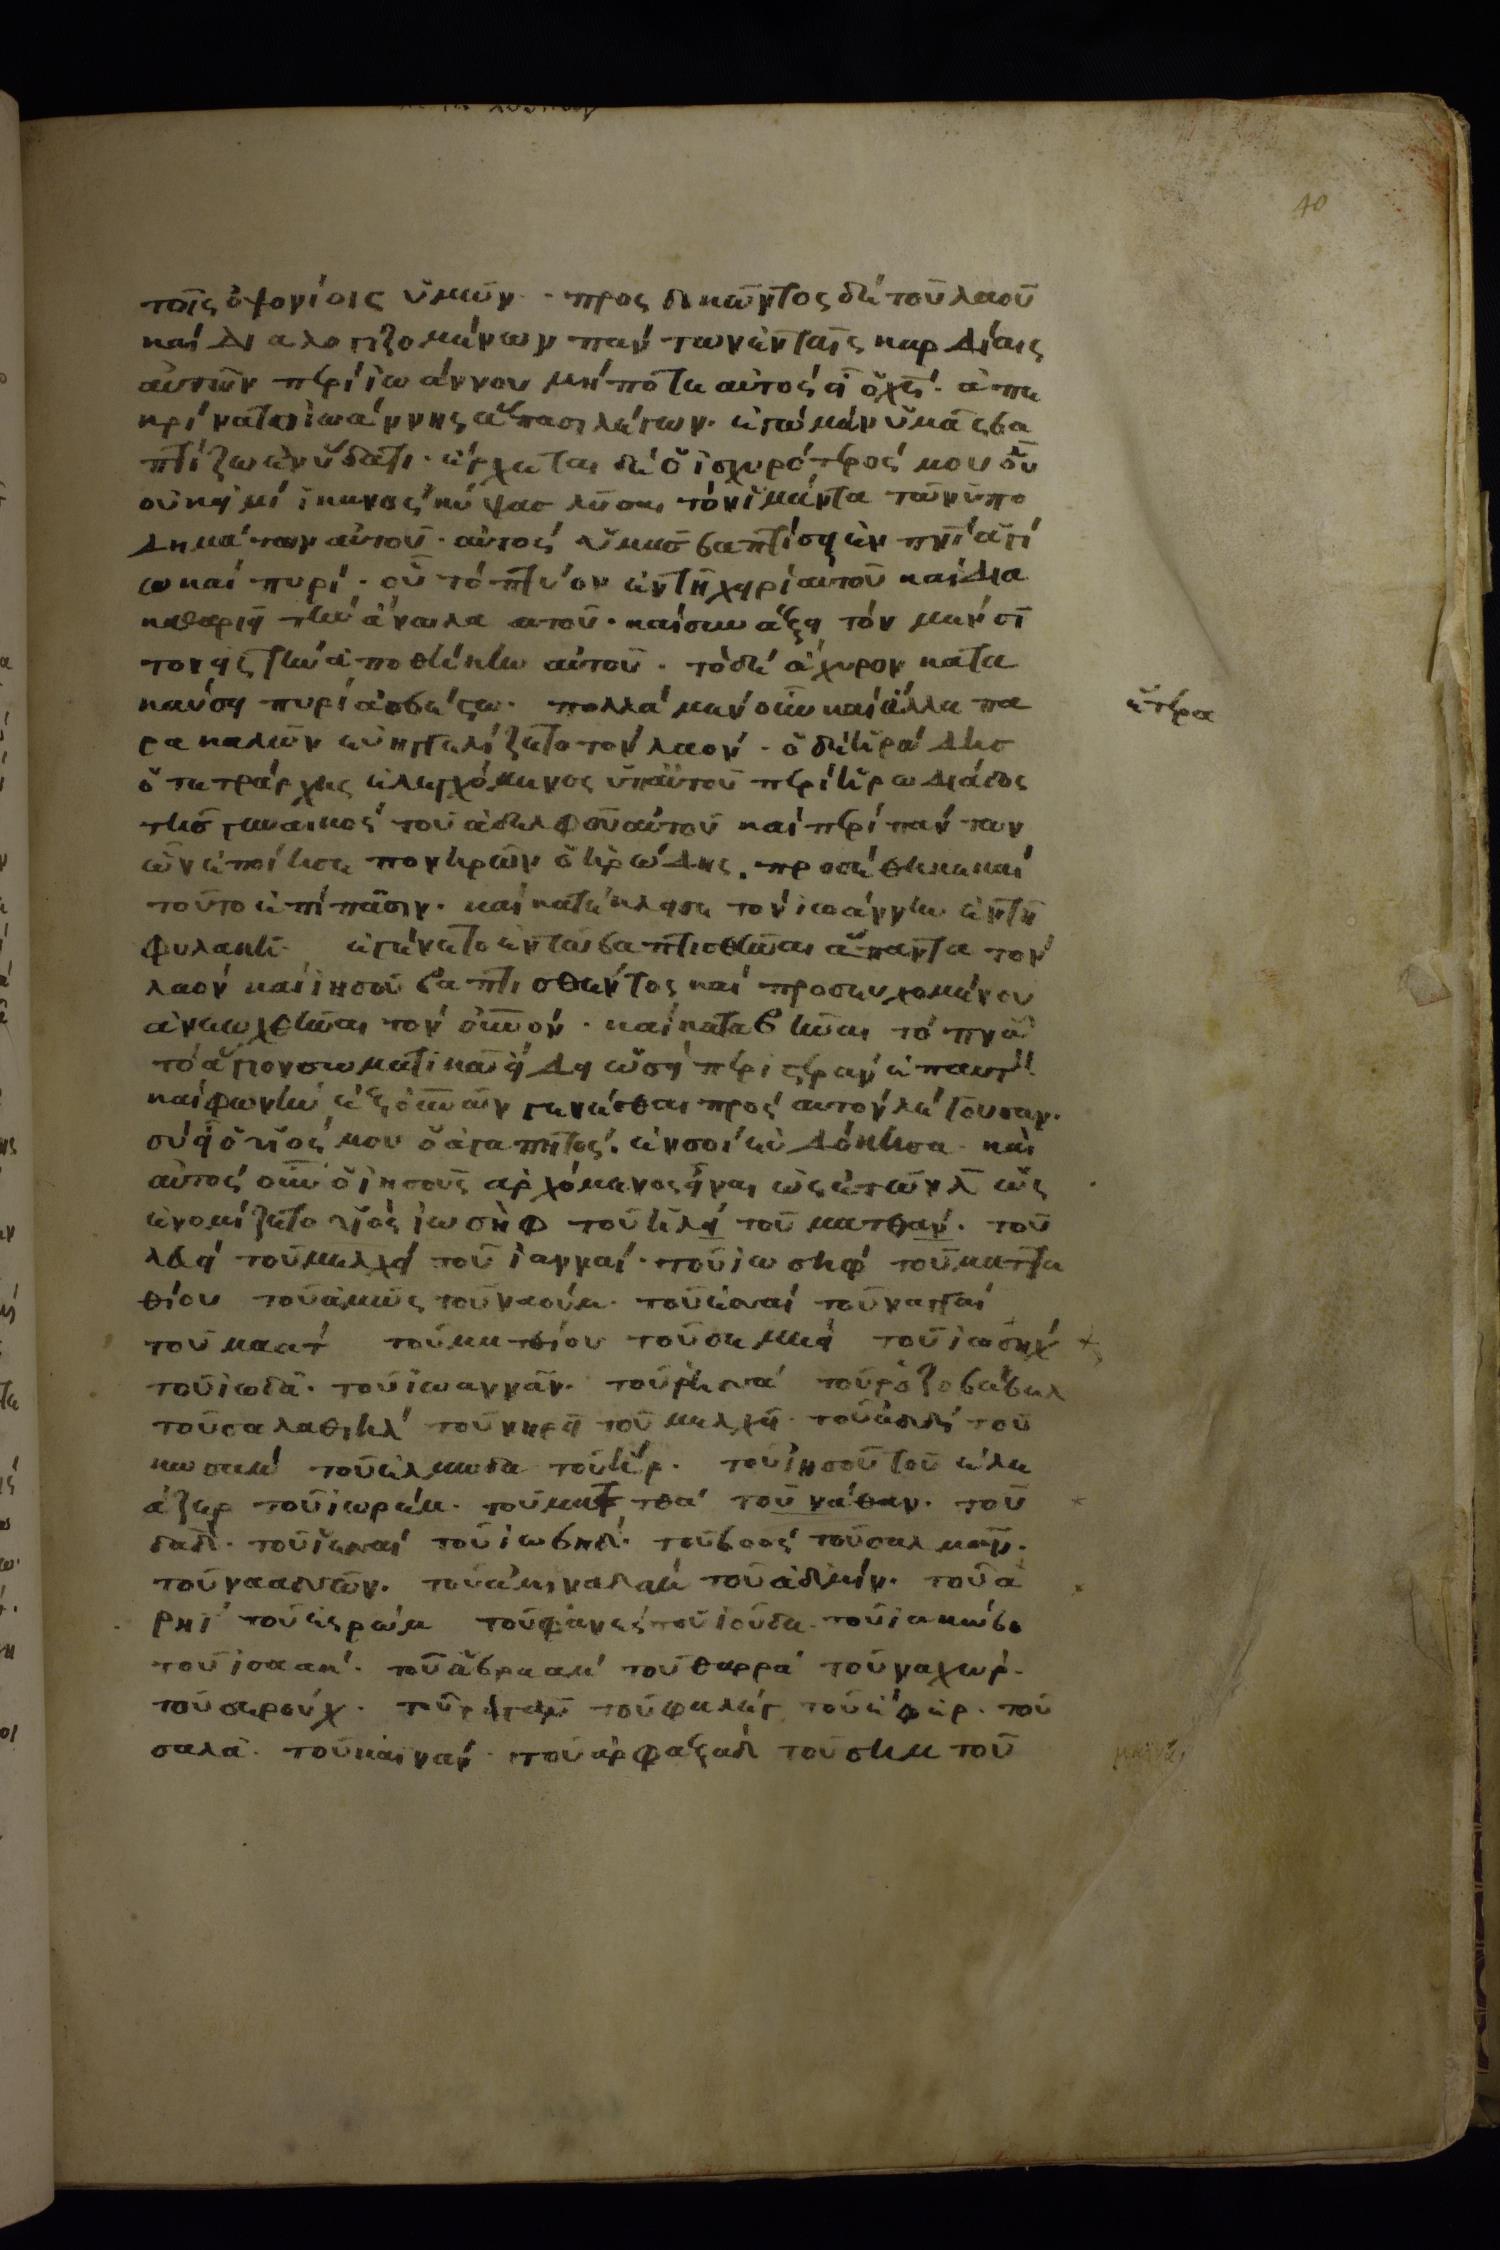 40
τοῖς ὀψονίοις ὑμῶν · προσδοκῶντος δέ τοῦ λαοῦ
καί διαλογιζομένων πάντων ἐν ταῖς καρδίαις
αὐτῶν περί ἰωάννου μήποτε αὐτός εἴη ὁ χς · ἀπε
κρίνατο ὁ ἰωάννης ἅπασι λέγων · ἐγώ μέν ὑμᾶς βα
πτίζω ἐν ὕδατι · ἔρχεται δέ ὁ ἰσχυρότερός μου οὗ
οὐκ εἰμί ἱκανός κύψας λῦσαι τόν ἱμάντα τῶν ὑπο
δημάτων αὐτοῦ · αὐτός ὑμᾶς βαπτίσει ἐν πνι ἁγί
ω καί πυρί · οὗ τό πτύον ἐν τῆ χειρί αὐτοῦ καί δια
καθαριεῖ τήν ἅλωνα αὐτοῦ · καί συνάξει τόν μέν σῖ
τον εἰς τήν ἀποθήκην αὐτοῦ · τό δέ ἄχυρον κατα
καύσει πυρί ἀσβέστω · πολλά μέν οὖν καί ἄλλα πα
ἕτερα
ρακαλῶν εὐηγγελίζετο τόν λαόν · ὁ δέ ἡρώδης
ὁ τετράρχης ἐλεγχόμενος ὑπ αὐτοῦ περί ἡρωδιάδος
τῆς γυναικός τοῦ ἀδελφοῦ αὐτοῦ καί περί πάντων
ὧν ἐποίησε πονηρῶν ὁ ἡρώδης · προσέθηκε καί
τοῦτο ἐπί πᾶσιν · καί κατέκλεισε τόν ἰωάννην ἐν τῆ
φυλακῆ · ἐγένετο ἐν τῶ βαπτισθῆναι ἅπαντα τόν
λαόν καί ἰησοῦ βαπτισθέντος καί προσευχομένου
ἀνεωχθῆναι τόν οὐνον · καί καταβῆναι τό πνα
τό ἅγιον σωματικῶ εἴδει ὡσεί περιστεράν ἐπ αυτόν
καί φωνήν ἐξ οὐνῶν γενέσθαι πρός αυτόν λέγουσαν ·
σύ εἶ ὁ υἱός μου ὁ ἀγαπητός · ἐν σοί εὐδόκησα · καί
αὐτός οὖν ὁ ἰησοῦς ἀρχόμενος εἶναι ὡς ἐτῶν λ ὡς
ἐνομίζετο υἱός ἰωσήφ τοῦ ἡλεί τοῦ ματθαν · τοῦ
λευεί τοῦ μελχεί τοῦ ἰανναί · τοῦ ἰωσήφ τοῦ ματτα
θίου τοῦ ἀμώς τοῦ ναούμ · τοῦ ἐσλαί τοῦ ναγγαί
τοῦ μαατ τοῦ ματθίου τοῦ σεμεεί τοῦ ἰωσήχ
τοῦ ἰωδᾶ · τοῦ ἰωαννᾶν · τοῦ ῥησα τοῦ ῥοζοβάβελ
τοῦ σαλαθιήλ τοῦ νηρῆ τοῦ μελχῆ · τοῦ ἀδδί τοῦ
κωσάμ τοῦ ἐλμωδα τοῦ ἤρ · τοῦ ἰησοῦ τοῦ ἐλε
άζερ τοῦ ἰωράμ · τοῦ ματτθα τοῦ νάθαν · τοῦ
δαδ · τοῦ ἰεσσαί τοῦ ἰωβήδ · τοῦ βοός τοῦ σαλμών ·
τοῦ ναασσῶν · τοῦ ἀμιναδάμ τοῦ ἀδμίν · τοῦ ἀ
ρνί τοῦ ἐσρώμ τοῦ φάρες τοῦ ἰούδα · τοῦ ἰακώβ
τοῦ ἰσαάκ · τοῦ ἀβραάμ τοῦ θαρρά τοῦ ναχώρ ·
τοῦ σερούχ · τοῦ ῥαγαῦ τοῦ φαλέγ τοῦ ἐφέρ · τοῦ
σαλά · τοῦ καϊνάν · τοῦ ἀρφαξάδ τοῦ σήμ τοῦ